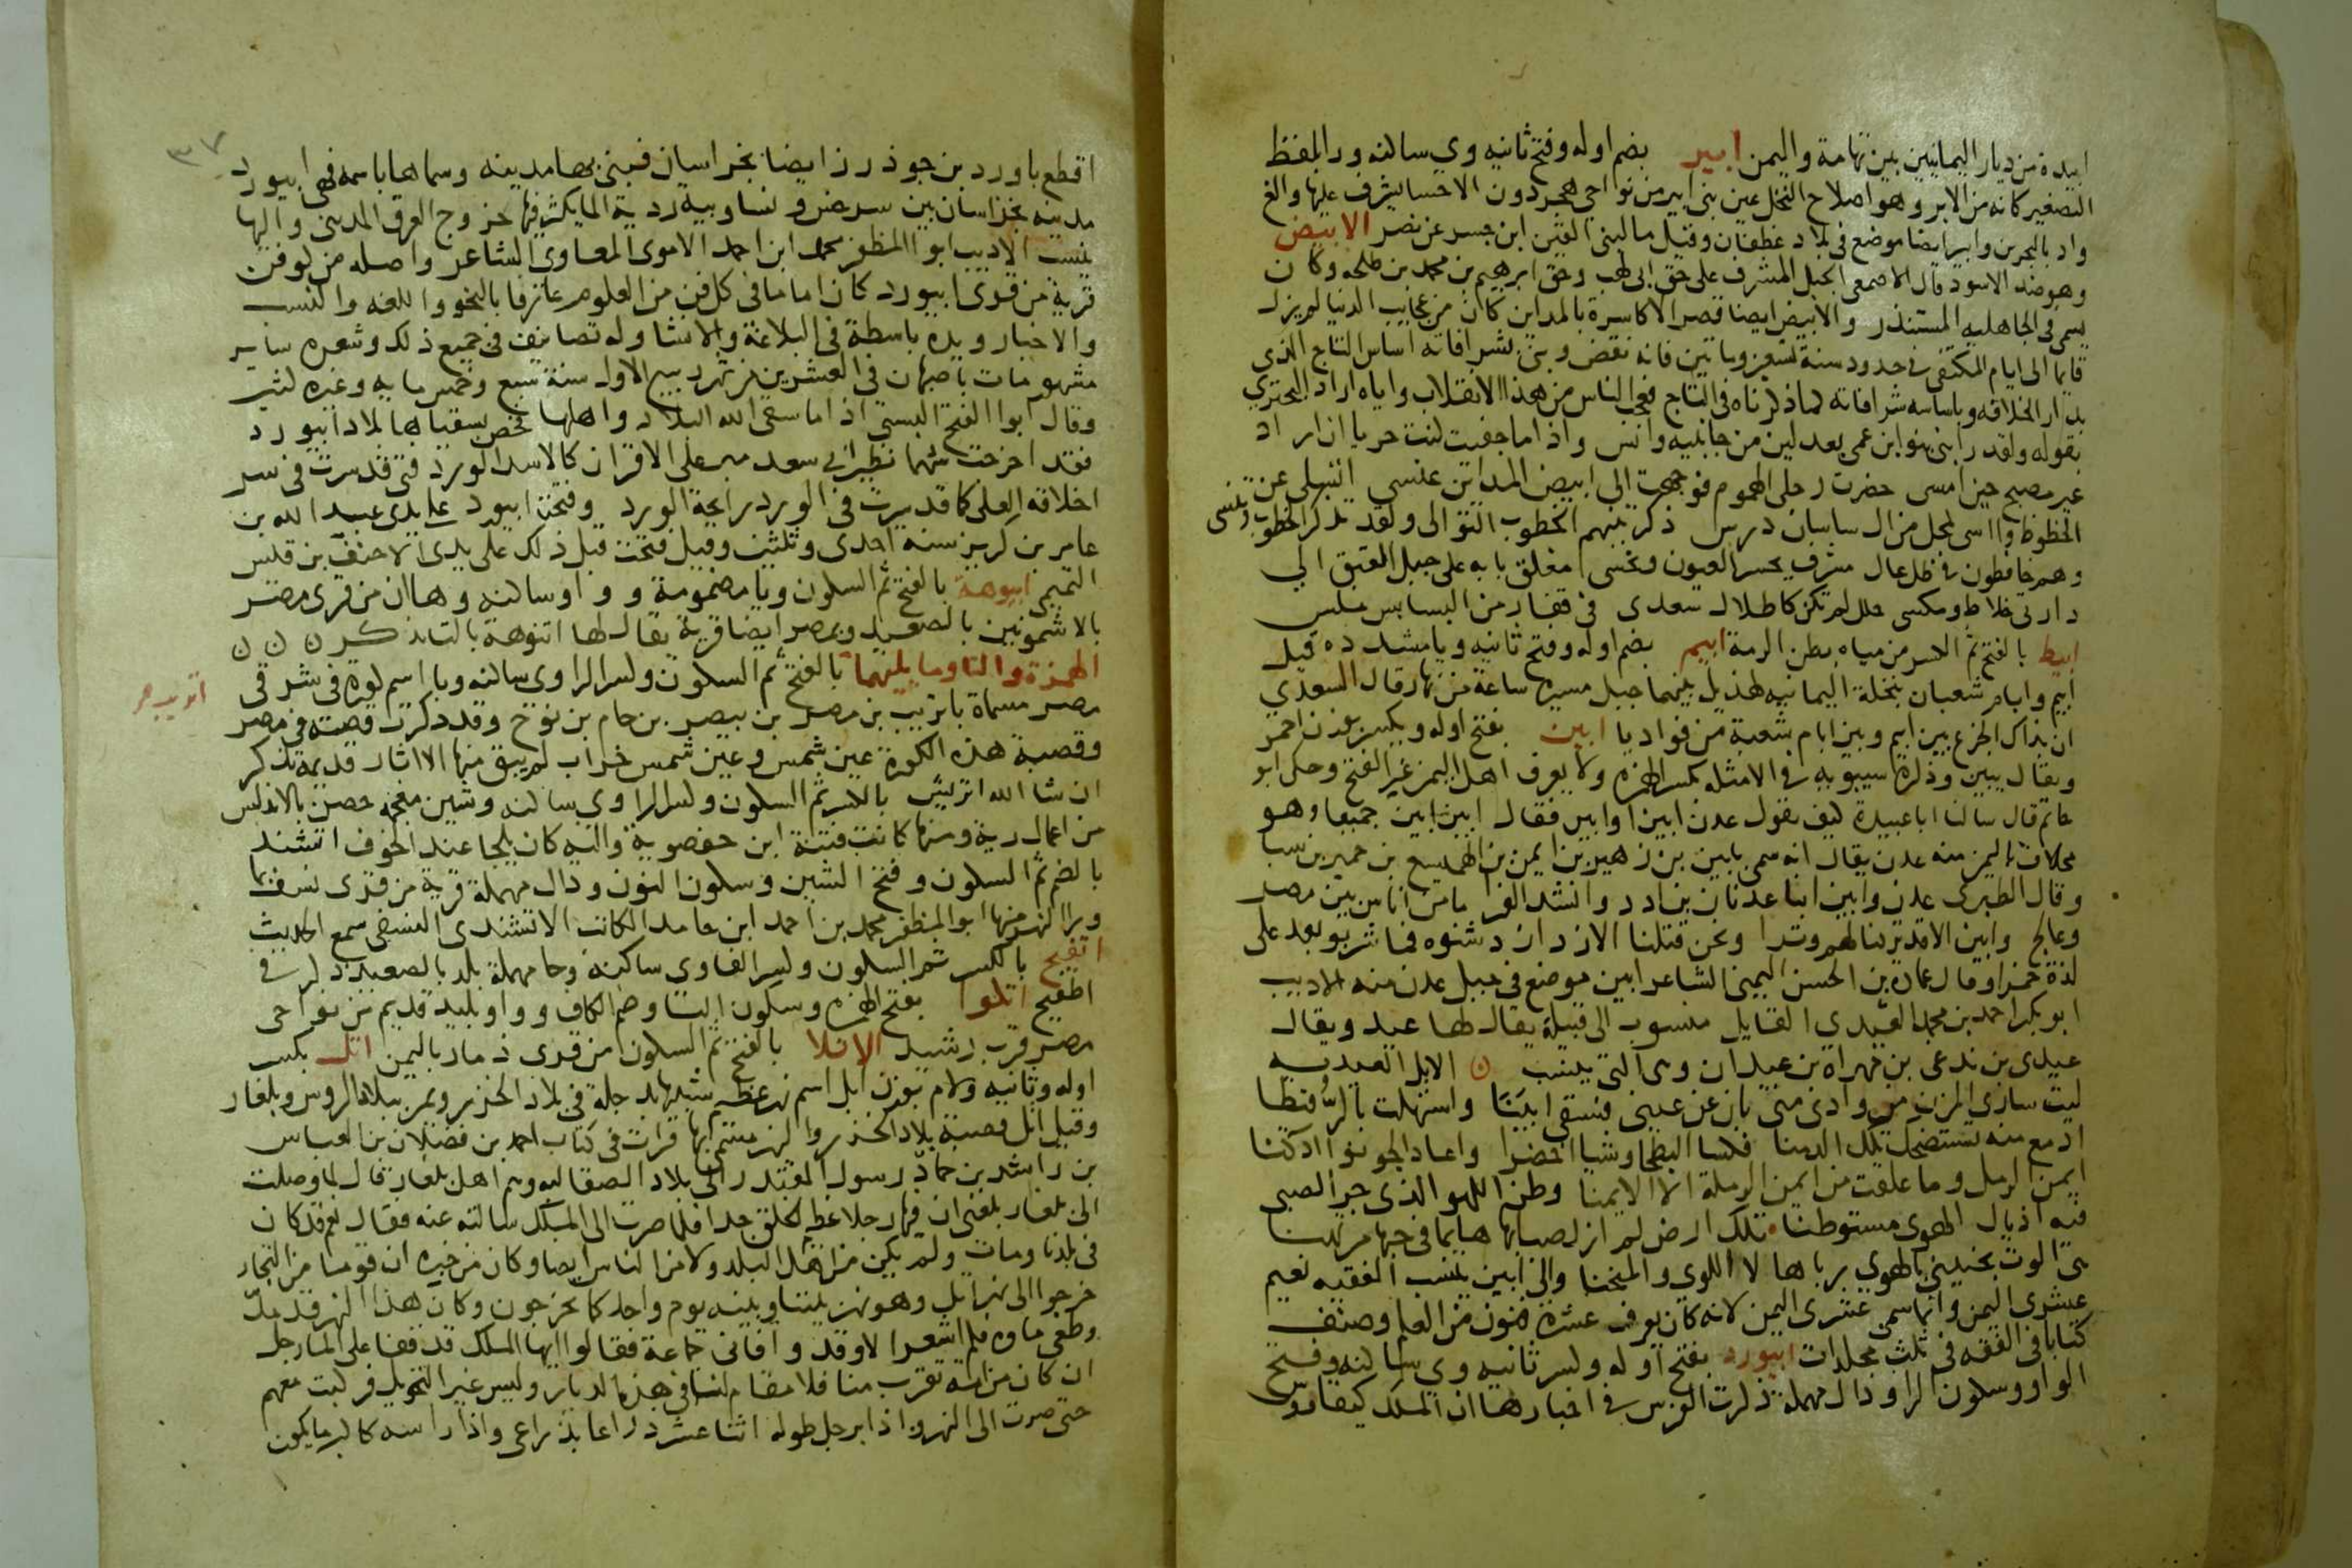 ابيدة من ديار اليمانيين بين تهامة واليمن ابير بضم اوله وفتح ثانيه وي ساكنه ورا بلفظ
التصغير كانه من الابر وهو اصلاح النخل عين بنى ابير من نواحي هجر دون الاحسا يشرف عليها والغ
واد بالبحرين وابير ايضا موضع فى بلاد غطفان وقيل ما لبنى القين ابن جسر عن نصر الابيض
وهو ضد الاسود قال الاصمعى الجبل المشرف على حق ابى لهب وحق ابرهيم بن محمد بن طلحه وكان
يسمى فى الجاهليه المستنذر والابيض ايضا قصر الاكاسرة بالمداين كان من عجايب الدنيا لم يزل
قايما الى ايام المكتفى فى حدود سنة تسعين وماتين فانه نقض وبنى بشرافاته اساس التاج الذي
بدار الخلافه وباساسه شرافاته كما ذكرناه فى التاج فعجب الناس من هذا الانقلاب واياه اراد البحتري
بقوله ولقد رابنى نبو ابن عمى بعد لين من جانبيه وانس واذا ما جفيت كنت حريا ان ار اد
غير مصبح حين امسى حضرت رحلى الهموم فوجهت الى ابيض المداين عنسى اتسلى عن
الحظوظ وااسى لمحل من ال ساسان درس ذكرتنيهم الخطوب التوالى ولقد تذكر الخطوب وتنسى
وهم خافظون فى ظل عال مشرف يحسر العيون ويخسى مغلق بابه على جبل القبق الي
دارتى خلاط ومكسى حلل لم تكن كاطلال سعدى فى قفار من البسابس ملس
ابيط بالفتح ثم الكسر من مياه بطن الرمة ابيم بضم اوله وفتح ثانيه ويا مشدده قيل
ابيم وابام شعبان بنخلة اليمانيه لهذيل بينهما جبل مسيره ساعة من نهار قال السعدي
ان بذاك الجزع بين ابيم وبين ابام شعبة من فواديا ابين بفتح اوله ويكسر بوزن احمر
ويقال يبين وذكره سيبويه فى الامثله بكسر الهمزه ولا يعرف اهل اليمن غير الفتح وحكى ابو
حاتم قال سالنا ابا عبيدة كيف نقول عدن ابين او ابين فقال ابين ابين جميعا وهو
مخلاف باليمن منه عدن يقال انه سمى بابين بن زهير بن ايمن بن الهميسع بن حمير بن سبا
وقال الطبرى عدن وابين ابنا عدنان بن ادد وانشد الفرا ما من اناس بين مصر
وعالج وابين الا قد تركنا لهم وترا ونحن قتلنا الازد ازد شنوه فما شربو بعد على
لذة خمرا وقال عماره بن الحسن اليمني الشاعر ابين موضع فى جبل عدن منه الاديب
ابو بكر احمد بن محمد العيدي القايل منسوب الى قبيلة يقال لها عيد ويقال
عيدى بن ندعى بن مهراة بن عيدان وهى التى ينسب ن الابل العيديه
ليت سارى المزن من وادى منى بان عن عينى فيسقى ابينا واستهلت بالرشا
ادمع منه تستضحك تلك الدمنا فكسا البطحا وشيا اخضرا واعاد الجو نوا ادكنا
ايمن الرمل وما علقت من ايمن الرملة الا الايمنا وطن اللهو الذى جر الصبى
فيه اذيال الهوى مستوطنا تلك ارض لم ازل صبا بها هايما فى حبها مرتهنا
هى الوت بحنينى بالهوى برباها لا اللوى والمنحنا والى ابين ينسب الفقيه نعيم
عشرى اليمن وانما سمى عشرى اليمن لانه كان يعرف عشرة فنون من العلم وصنف
كتابا فى الفقه فى ثلث مجلدات ابيورد بفتح اوله وكسر ثانيه وي ساكنه وفتح
الواو وسكون الرا ودال مهملة ذكرت الفرس فى اخبارها ان الملك كيقاوس
٣٧
اقطع باورد بن جوذرز ايضا بخراسان فبنى بها مدينه وسماها باسمه فهى ابيورد
مدينه بخراسان بين سرخس ونسا وبيه ردية الما يكثر فيها خروج العرق المدينى واليها
ينسب الاديب ابو المظفر محمد ابن احمد الاموى المعاوى الشاعر واصله من كوفن
قرية من قرى ابيورد كان اماما فى كل فن من العلوم عارفا بالنحو واللغه والنسب
والاخبار ويده باسطة فى البلاغة والانشا وله تصانيف فى جميع ذلك وشعره ساير
مشهور مات باصبهان فى العشرين من شهر ربيع الاول سنة سبع وخمس مايه وغيره كثير
وقال ابو الفتح البستي اذا ما سقى الله البلاد واهلها فخص بسقياها بلاد ابيورد
فقد اخرجت شهما نظير ابى سعد مبر على الاقران كالاسد الورد فتى قد سرت فى سر
اخلاقه العلى كما قد سرت فى الورد رايحة الورد وفتحت ابيورد على يدى عبد الله بن
عامر بن كريز سنه احدى وثلثين وقيل فتحت قبل ذلك على يدى الاحنف بن قيس
التميمى ابيوهة بالفتح ثم السكون ويا مضمومة وواو ساكنه وهاان من قرى مصر
بالاشمونين بالصعيد وبمصر ايضا قرية يقال لها اتنوهة بالتا تذكر ن ن ن
الهمزة والتا وما يليهما بالفتح ثم السكون وكسر الرا وي ساكنه وبا اسم كوره فى شرقى
اتريب
مصر مسماة باتريب بن مصر بن بيصر بن حام بن نوح وقد ذكرت قصته فى مصر
وقصبة هذه الكورة عين شمس وعين شمس خراب لم يبق منها الا اثار قديمة تذكر
ان شا الله اتريش بالكسر ثم السكون وكسر الرا وي ساكنه وشين معجمه حصن بالاندلس
من اعمال رية ومنها كانت فتنة ابن حفصوية واليه كان يلجا عند الخوف اتشند
بالضم ثم السكون وفتح الشين وسكون النون ودال مهملة قرية من قرى نسف بما
ورا النهر منها ابو المظفر محمد بن احمد ابن حامد الكاتب الاتشندى النسفى سمع الحديث
اتفيح بالكسر ثم السكون وكسر الفا وي ساكنة وحا مهملة بلد بالصعيد ذكر فى
اطفيح اتكوا بفتح الهمزه وسكون التا وضم الكاف وواو بليد قديم من نواحى
مصر قرب رشيد الاتلا بالفتح ثم السكون من قرى ذمار باليمن اتل بكسر
اوله وثانيه ولام بوزن ابل اسم نهر عظيم شبيه بدجلة فى بلاد الخزر ويمر ببلاد الروس وبلغار
وقيل اتل قصبة بلاد الخزر والنهر مسمى بها قرات فى كتاب احمد بن فضلان بن العباس
بن راشد بن حماد رسول المقتدر الى بلاد الصقالبه وهم اهل بلغار قال لما وصلت
الى بلغار بلغنى ان فيها رجلا عظيم الخلق جدا فلما صرت الى الملك سالته عنه فقال نعم قد كان
فى بلدنا ومات ولم يكن من اهل البلد ولا من الناس ايضا وكان من خبره ان قوما من التجار
خرجوا الى نهر اتل وهو نهر بيننا وبينه يوم واحد كما يخرجون وكان هذا النهر قد مد
وطغى ماوه فلم اشعر الا وقد وافانى جماعة فقالوا ايها الملك قد قفا على الما رجل
ان كان من امة تقرب منا فلا مقام لنا فى هذه الديار وليس غير التحويل فركبت معهم
حتى صرت الى النهر واذا برجل طوله اثنا عشر ذراعا بذراعى واذا راسه كاكبر ما يكون